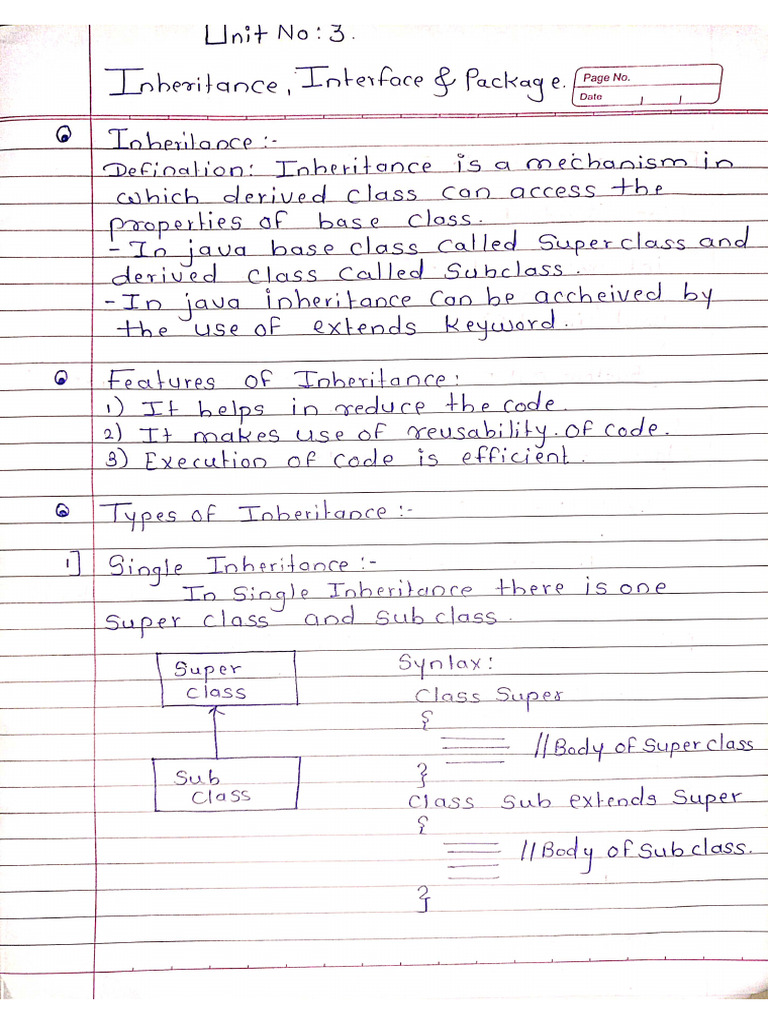 Unit No: 3.
Inheritance, Interface & Package.
Page No.
Date
Inheritance :-
Defination: Inheritance is a mechanism in
which derived class can access the
properties of base class.
- In java base class called Super class and
derived class called Subclass.
- In java inheritance can be accheived by
the use of extends keyword.
Features of Inheritance:
1) It helps in reduce the code.
2) It makes use of reusability of code.
3) Execution of code is efficient.
Types of Inheritance :-
1] Single Inheritance :-
In Single Inheritance there is one
Super class and sub class.
Super
class
Sub
class
Syntax:
Class Super
{
//Body of Super class
}
Class Sub extends Super
{
//Body of Sub class.
}